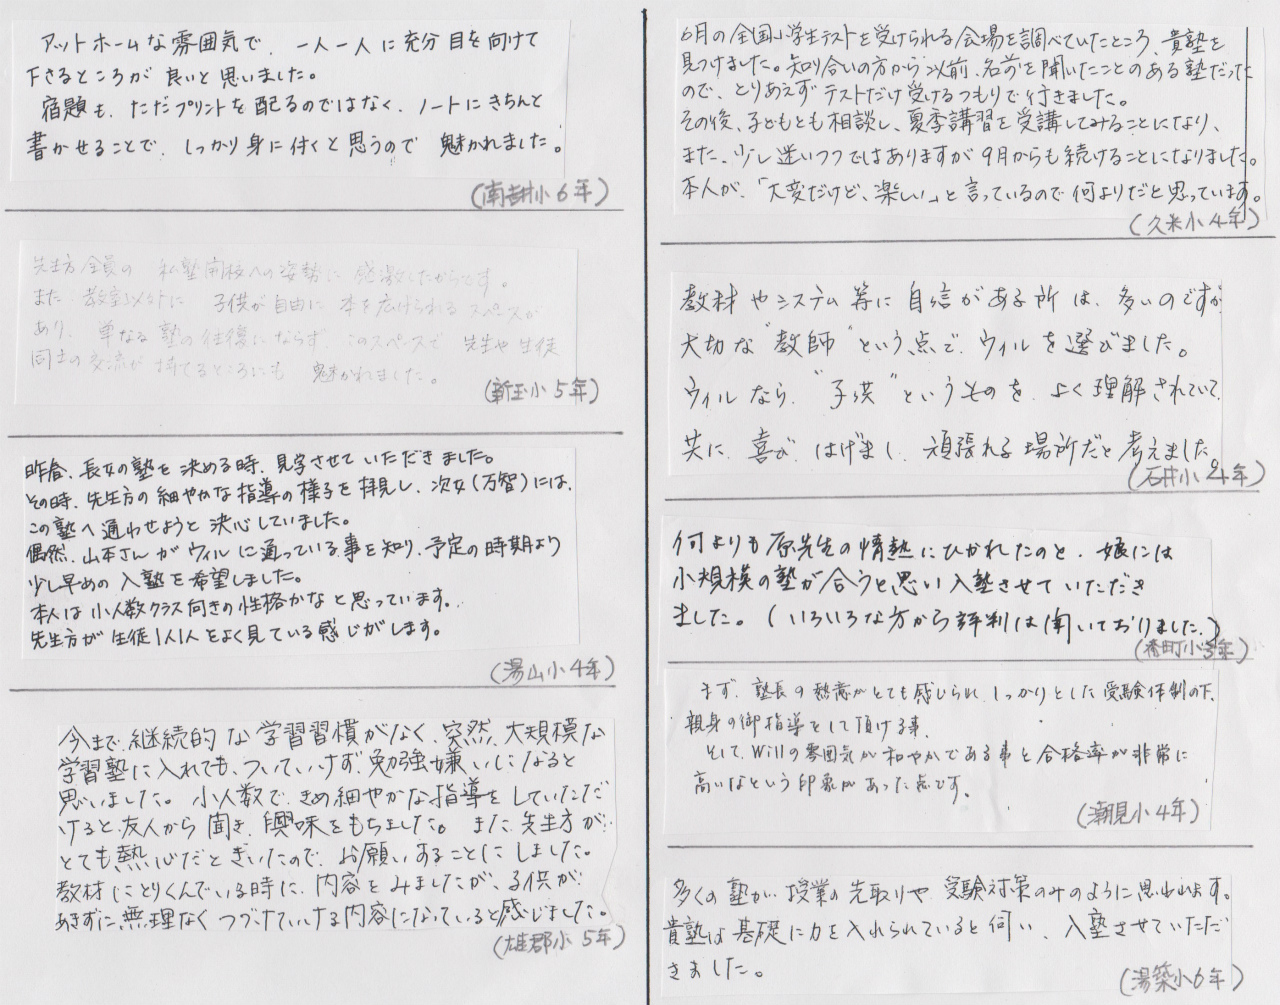 アットホームな雰囲気で、一人一人に充分目を向けて
下さるところが良いと思いました。
宿題も、ただプリントを配るのではなく、ノートにきちんと
書かせることで、しっかり身に付くと思うので魅かれました。
(南耕小6年)
先生方全員の私塾開校への姿勢に感激したからです。
また教室以外に子供が自由に本を広げられるスペースが
あり、単なる塾の往復にならず、このスペースで先生や生徒
同士の交流が持てるところにも魅かれました。
(新玉小5年)
昨春、長女の塾を決める時、見学させていただきました。
その時、先生方の細やかな指導の様子を拝見し、次女(万智)には、
この塾へ通わせようと決心していました。
偶然、山本さんがウィルに通っている事を知り、予定の時期より
少し早めの入塾を希望しました。
本人は小人数クラス向きの性格かなと思っています。
先生方が生徒1人1人をよく見ている感じがします。
(湯山小4年)
今まで継続的な学習習慣がなく、突然、大規模な
学習塾に入れても、ついていけず、勉強嫌いになると
思いました。小人数で、きめ細やかな指導をしていただ
けると、友人から聞き、興味をもちました。また、先生方が
とても熱心だときいたので、お願いすることにしました。
教材にとりくんでいる時に、内容をみましたが、子供が
あきずに無理なくつづけていける内容になっていると感じました。
(雄郡小5年)
6月の全国小学生テストを受けられる会場を調べていたところ、貴塾を
見つけました。知り合いの方から以前、名前を聞いたことのある塾だった
ので、とりあえずテストだけ受けるつもりで行きました。
その後、子どもとも相談し、夏季講習を受講してみることになり、
また、少し迷いつつではありますが9月からも続けることになりました。
本人が、「大変だけど、楽しい」と言っているので何よりだと思っています。
(久米小4年)
教材やシステム等に自信がある所は、多いのですが
大切な“教師”という点で、ウィルを選びました。
ウィルなら、“子供”というものを、よく理解されていて
共に、喜び、はげまし、頑張れる場所だと考えました。
(石井小4年)
何よりも原先生の情熱にひかれたのと、娘には
小規模の塾が合うと思い入塾させていただき
ました。(いろいろな方から評判は聞いておりました。)
(番町小5年)
まず、塾長の熱意がとても感じられ、しっかりとした受験体制の下、
親身の御指導をして頂ける事、
そして、Willの雰囲気が和やかである事と合格率が非常に
高いなという印象があった点です。
(潮見小4年)
多くの塾が、授業の先取りや、受験対策のみのように思います。
貴塾は基礎に力を入れられていると伺い、入塾させていただ
きました。
(湯築小6年)